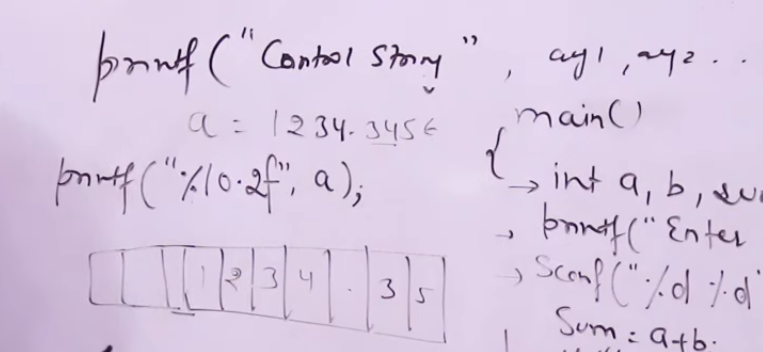 printf("Control String", arg1, arg2..
a = 1234.3456
printf("%10.2f", a);
1 2 3 4 . 3 5
main()
{
→ int a, b, su
→ printf("Enter
→ Scanf("%d %d"
Sum = a+b.